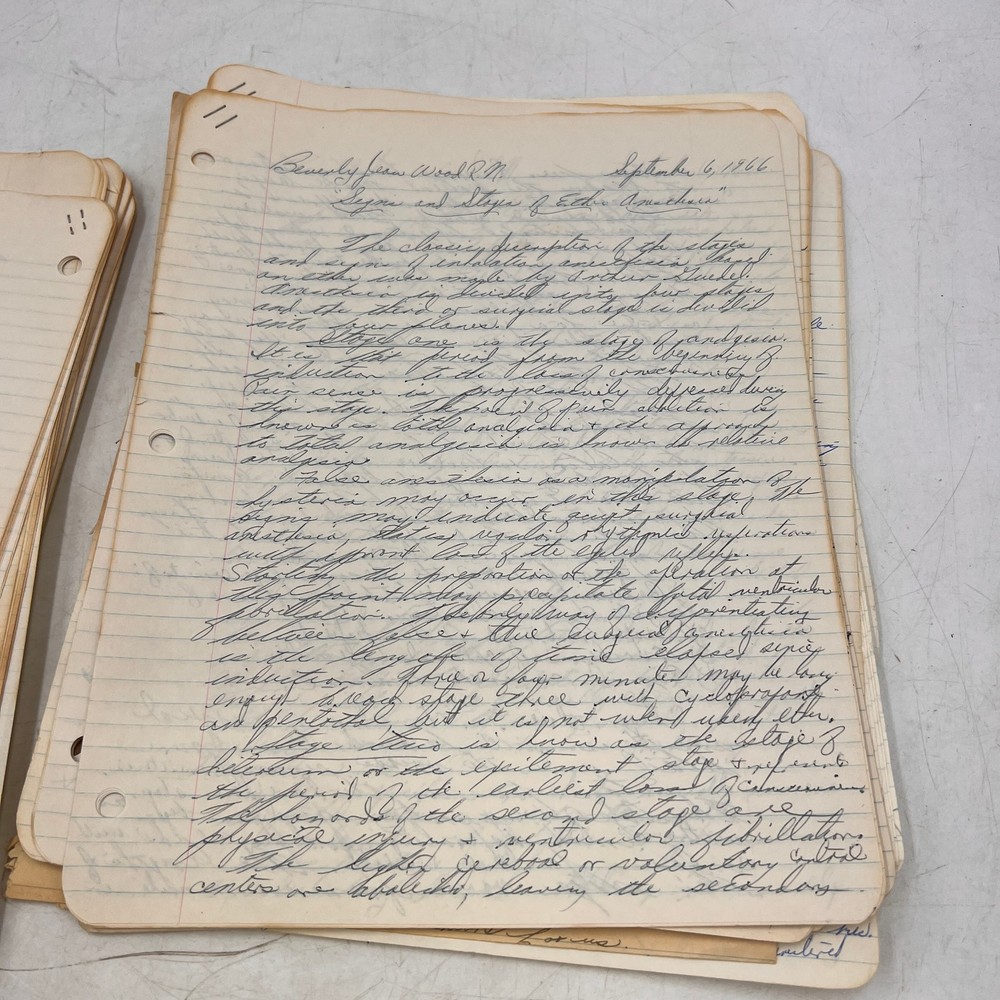 Beverly Jean Wood R.N. September 6, 1966
"Signs and Stages of Ether Anesthesia"
The classic description of the stages
and signs of inhalation anesthesia based
on ether was made by Arthur Guedel.
Anesthesia is divided into four stages,
and the third or surgical stage is divided
into four planes.
Stage one is the stage of analgesia.
It is the period from the beginning of
induction to the loss of consciousness
Pain sense is progressively depressed during
this stage. The point of pain abolition is
known as total analgesia & the approach
to total analgesia is known as relative
analgesia.
False anesthesia as a manifestation of
hysteria may occur in this stage. The
may indicate surgical
anesthesia, that is regular & rythmic respirations
with apparent loss of the eyelid reflex.
Starting the preparation or the operation at
this point may precipitate fatal ventricular
fibrillation. The only way of differentiating
between false & true surgical anesthesia
is the length of time elapsed since
induction. Three or four minutes may be long
enough to begin stage three with cyclopropane
and pentothal but it is not when using ether.
Stage two is know as the stage of
delerium or the excitement stage & represents
the period of the earliest loss of consciousness.
The hazards of the second stage are
physical injury & ventricular fibrillation.
The higher cerebral or voluntary control
centers are abolished, leaving the secondary